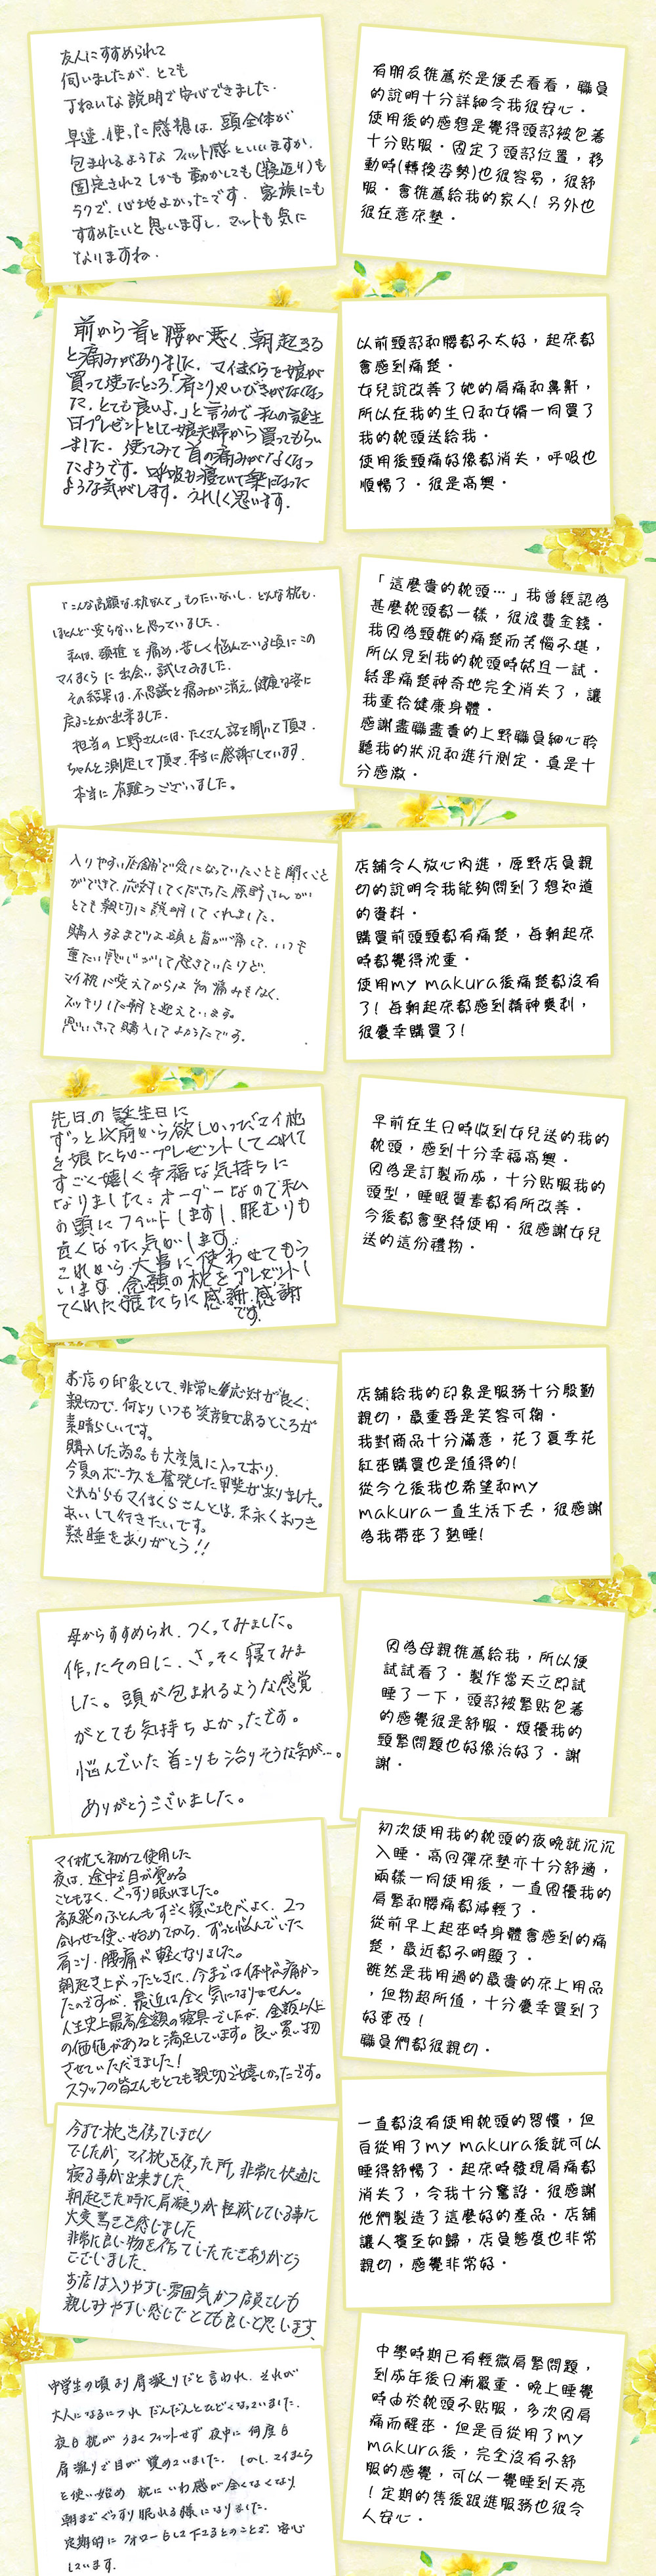 友人にすすめられて
伺いましたが、とても
丁ねいな説明で安心できました。
早速、使った感想は、頭全体が
包まれるようなフィット感といいますか、
固定されてしかも動かしても(寝返り)も
ラクで、心地よかったです。家族にも
すすめたいと思いますし、マットも気に
なりますね。
有朋友推薦於是便去看看，職員
的說明十分詳細令我很安心。
使用後的感想是覺得頭部被包著
十分貼服。固定了頭部位置，移
動時(轉換姿勢)也很容易，很舒
服。會推薦給我的家人！另外也
很在意床墊。
前から首と腰が悪く、朝起きる
と痛みがありました。マイまくらを娘が
買って使ったところ「肩こりやいびきがなくなっ
た、とても良いよ。」と言うので私の誕生
日プレゼントとして娘夫婦から買ってもらい
ました。使ってみて首の痛みがなくなっ
たようです。呼吸も寝ていて楽になった
ような気がします。うれしく思います。
以前頸部和腰都不太好，起床都
會感到痛楚。
女兒說改善了她的肩痛和鼻鼾，
所以在我的生日和女婿一同買了
我的枕頭送給我。
使用後頸痛好像都消失，呼吸也
順暢了。很是高興。
「こんな高額な枕なんて」もったいないし、どんな枕も、
ほとんど変らないと思っていました。
私は、頚椎を痛め、苦しく悩んでいる頃にこの
マイまくらに出会い、試してみました。
その結果は、不思議と痛みが消え、健康な姿に
戻ることが出来ました。
担当の上野さんには、たくさん話を聞いて頂き、
ちゃんと測定して頂き、本当に感謝しています。
本当に有難うございました。
「這麼貴的枕頭…」我曾經認為
甚麼枕頭都一樣，很浪費金錢。
我因為頸椎的痛楚而苦惱不堪，
所以見到我的枕頭時姑且一試。
結果痛楚神奇地完全消失了，讓
我重拾健康身體。
感謝盡職盡責的上野職員細心聆
聽我的狀況和進行測定。真是十
分感激。
入りやすい店舗で気になっていたことを聞くこと
ができて、応対してくださった原野さんが
とても親切に説明してくれました。
購入するまでは頭と首が痛くて、いつも
重たい感じがして起きていたけど、
マイ枕に変えてからは その痛みもなく、
スッキリした朝を迎えています。
思いきって購入してよかったです。
店舖令人放心內進，原野店員親
切的說明令我能夠問到了想知道
的資料。
購買前頭頸都有痛楚，每朝起床
時都覺得沈重。
使用my makura後痛楚都沒有
了！每朝起床都感到精神爽利，
很慶幸購買了！
先日の誕生日に
ずっと以前から欲しかったマイ枕
を娘たちがプレゼントしてくれて
すごく嬉しく幸福な気持ちに
なりました。オーダーなので私
の頭にフィットしますし、眠むりも
良くなった気がします。
これから大事に使わせてもら
います。念願の枕をプレゼントし
てくれた娘たちに感謝、感謝
です。
早前在生日時收到女兒送的我的
枕頭，感到十分幸福高興。
因為是訂製而成，十分貼服我的
頭型，睡眠質素都有所改善。
今後都會堅持使用。很感謝女兒
送的這份禮物。
お店の印象として、非常に応対が良く、
親切で、何よりいつも笑顔であるところが
素晴らしいです。
購入した商品も大変気に入っており、
今夏のボーナスを奮発した甲斐がありました。
これからもマイまくらさんとは、末永くおつき
あいして行きたいです。
熟睡をありがとう！！
店舖給我的印象是服務十分殷勤
親切，最重要是笑容可掬。
我對商品十分滿意，花了夏季花
紅來購買也是值得的！
從今之後我也希望和my
makura一直生活下去，很感謝
為我帶來了熟睡！
母からすすめられ、つくってみました。
作ったその日に、さっそく寝てみま
した。頭が包まれるような感覚
がとても気持ちよかったです。
悩んでいた首こりも治りそうな気が…。
ありがとうございました。
因為母親推薦給我，所以便
試試看了。製作當天立即試
睡了一下，頭部被緊貼包著
的感覺很是舒服。煩擾我的
頸緊問題也好像治好了。謝
謝。
マイ枕を初めて使用した
夜は、途中で目が覚める
こともなく、ぐっすり眠れました。
高反発のふとんもすごく寝心地がよく、2つ
合わせて使い始めてから、ずっと悩んでいた
肩こり、腰痛が軽くなりました。
朝起き上がったときに、今までは体中が痛かっ
たのですが、最近は全く気になりません。
人生史上最高金額の寝具でしたが、金額以上
の価値があると満足しています。良い買い物
させていただきました！
スタッフの皆さんもとても親切で嬉しかったです。
初次使用我的枕頭的夜晚就沉沉
入睡。高回彈床墊亦十分舒適，
兩樣一同使用後，一直困擾我的
肩緊和腰痛都減輕了。
從前早上起來時身體會感到的痛
楚，最近都不明顯了。
雖然是我用過的最貴的床上用品
，但物超所值，十分慶幸買到了
好東西！
職員們都很親切。
今まで枕を使っていません
でしたが、マイ枕を使った所、非常に快適に
寝る事が出来ました。
朝起きた時に肩凝りが軽減している事に
大変驚きを感じました
非常に良い物を作っていただきありがとう
ございました。
お店は入りやすい雰囲気かつ店員さんも
親しみやすい感じでとても良いと思います。
一直都沒有使用枕頭的習慣，但
自從用了my makura後就可以
睡得舒暢了。起床時發現肩痛都
消失了，令我十分驚訝。很感謝
他們製造了這麼好的產品。店舖
讓人賓至如歸，店員態度也非常
親切，感覺非常好。
中学生の頃より肩凝りだと言われ、それが
大人になるにつれ だんだんとひどくなっていました。
夜も枕が うまくフィットせず 夜中に 何度も
肩凝りで目が覚めていました。しかし、マイまくら
を使い始め 枕にいわ感が全くなくなり
朝までぐっすり眠れる様になりました。
定期的に フォローもして下さるとのことで、安心
しています。
中學時期已有輕微肩緊問題，
到成年後日漸嚴重。晚上睡覺
時由於枕頭不貼服，多次因肩
痛而醒來。但是自從用了my
makura後，完全沒有不舒
服的感覺，可以一覺睡到天亮
！定期的售後跟進服務也很令
人安心。